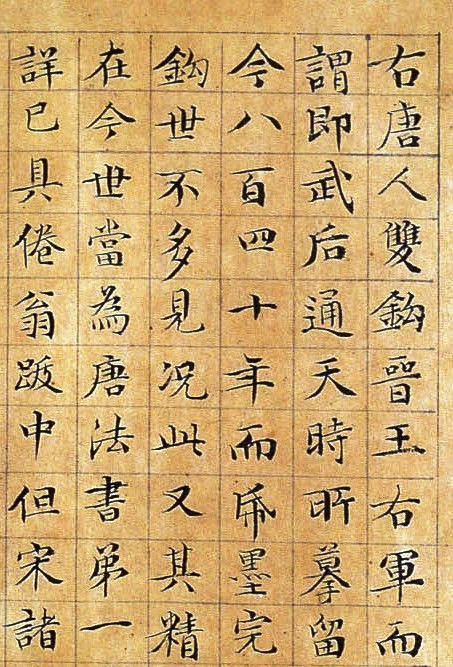 右唐人雙鈎晉王右軍而
謂即武后通天時所摹留
今八百四十年而帋墨完
鈎世不多見况此又其精
在今世當為唐法書弟一
詳已具倦翁跋中但宋諸